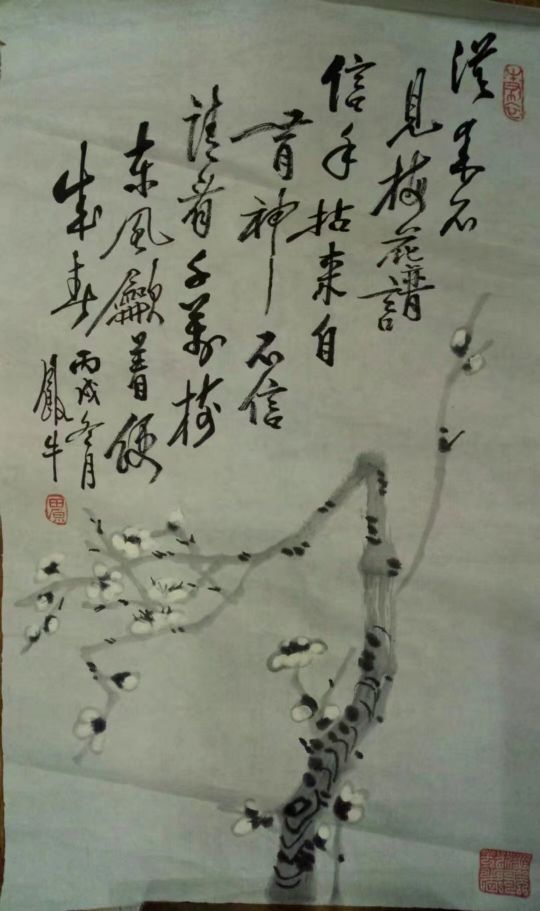 從来不
見梅花譜
信手拈来自
有神不信
請看千萬樹
東風龡著便
成春
丙戌冬月
牛